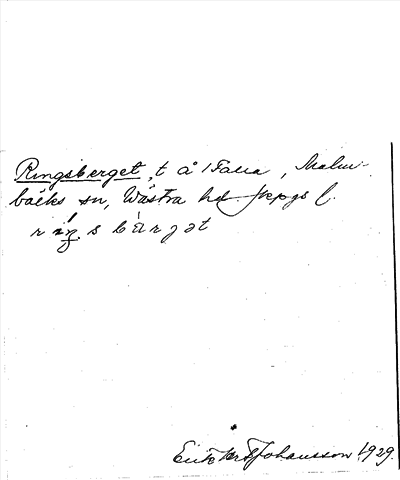 Ringsberget, t å Falla, Malm-
bäcks sn, Västra hd Jkpgs l.
ríŋsbàrjət
Johansson 1929.